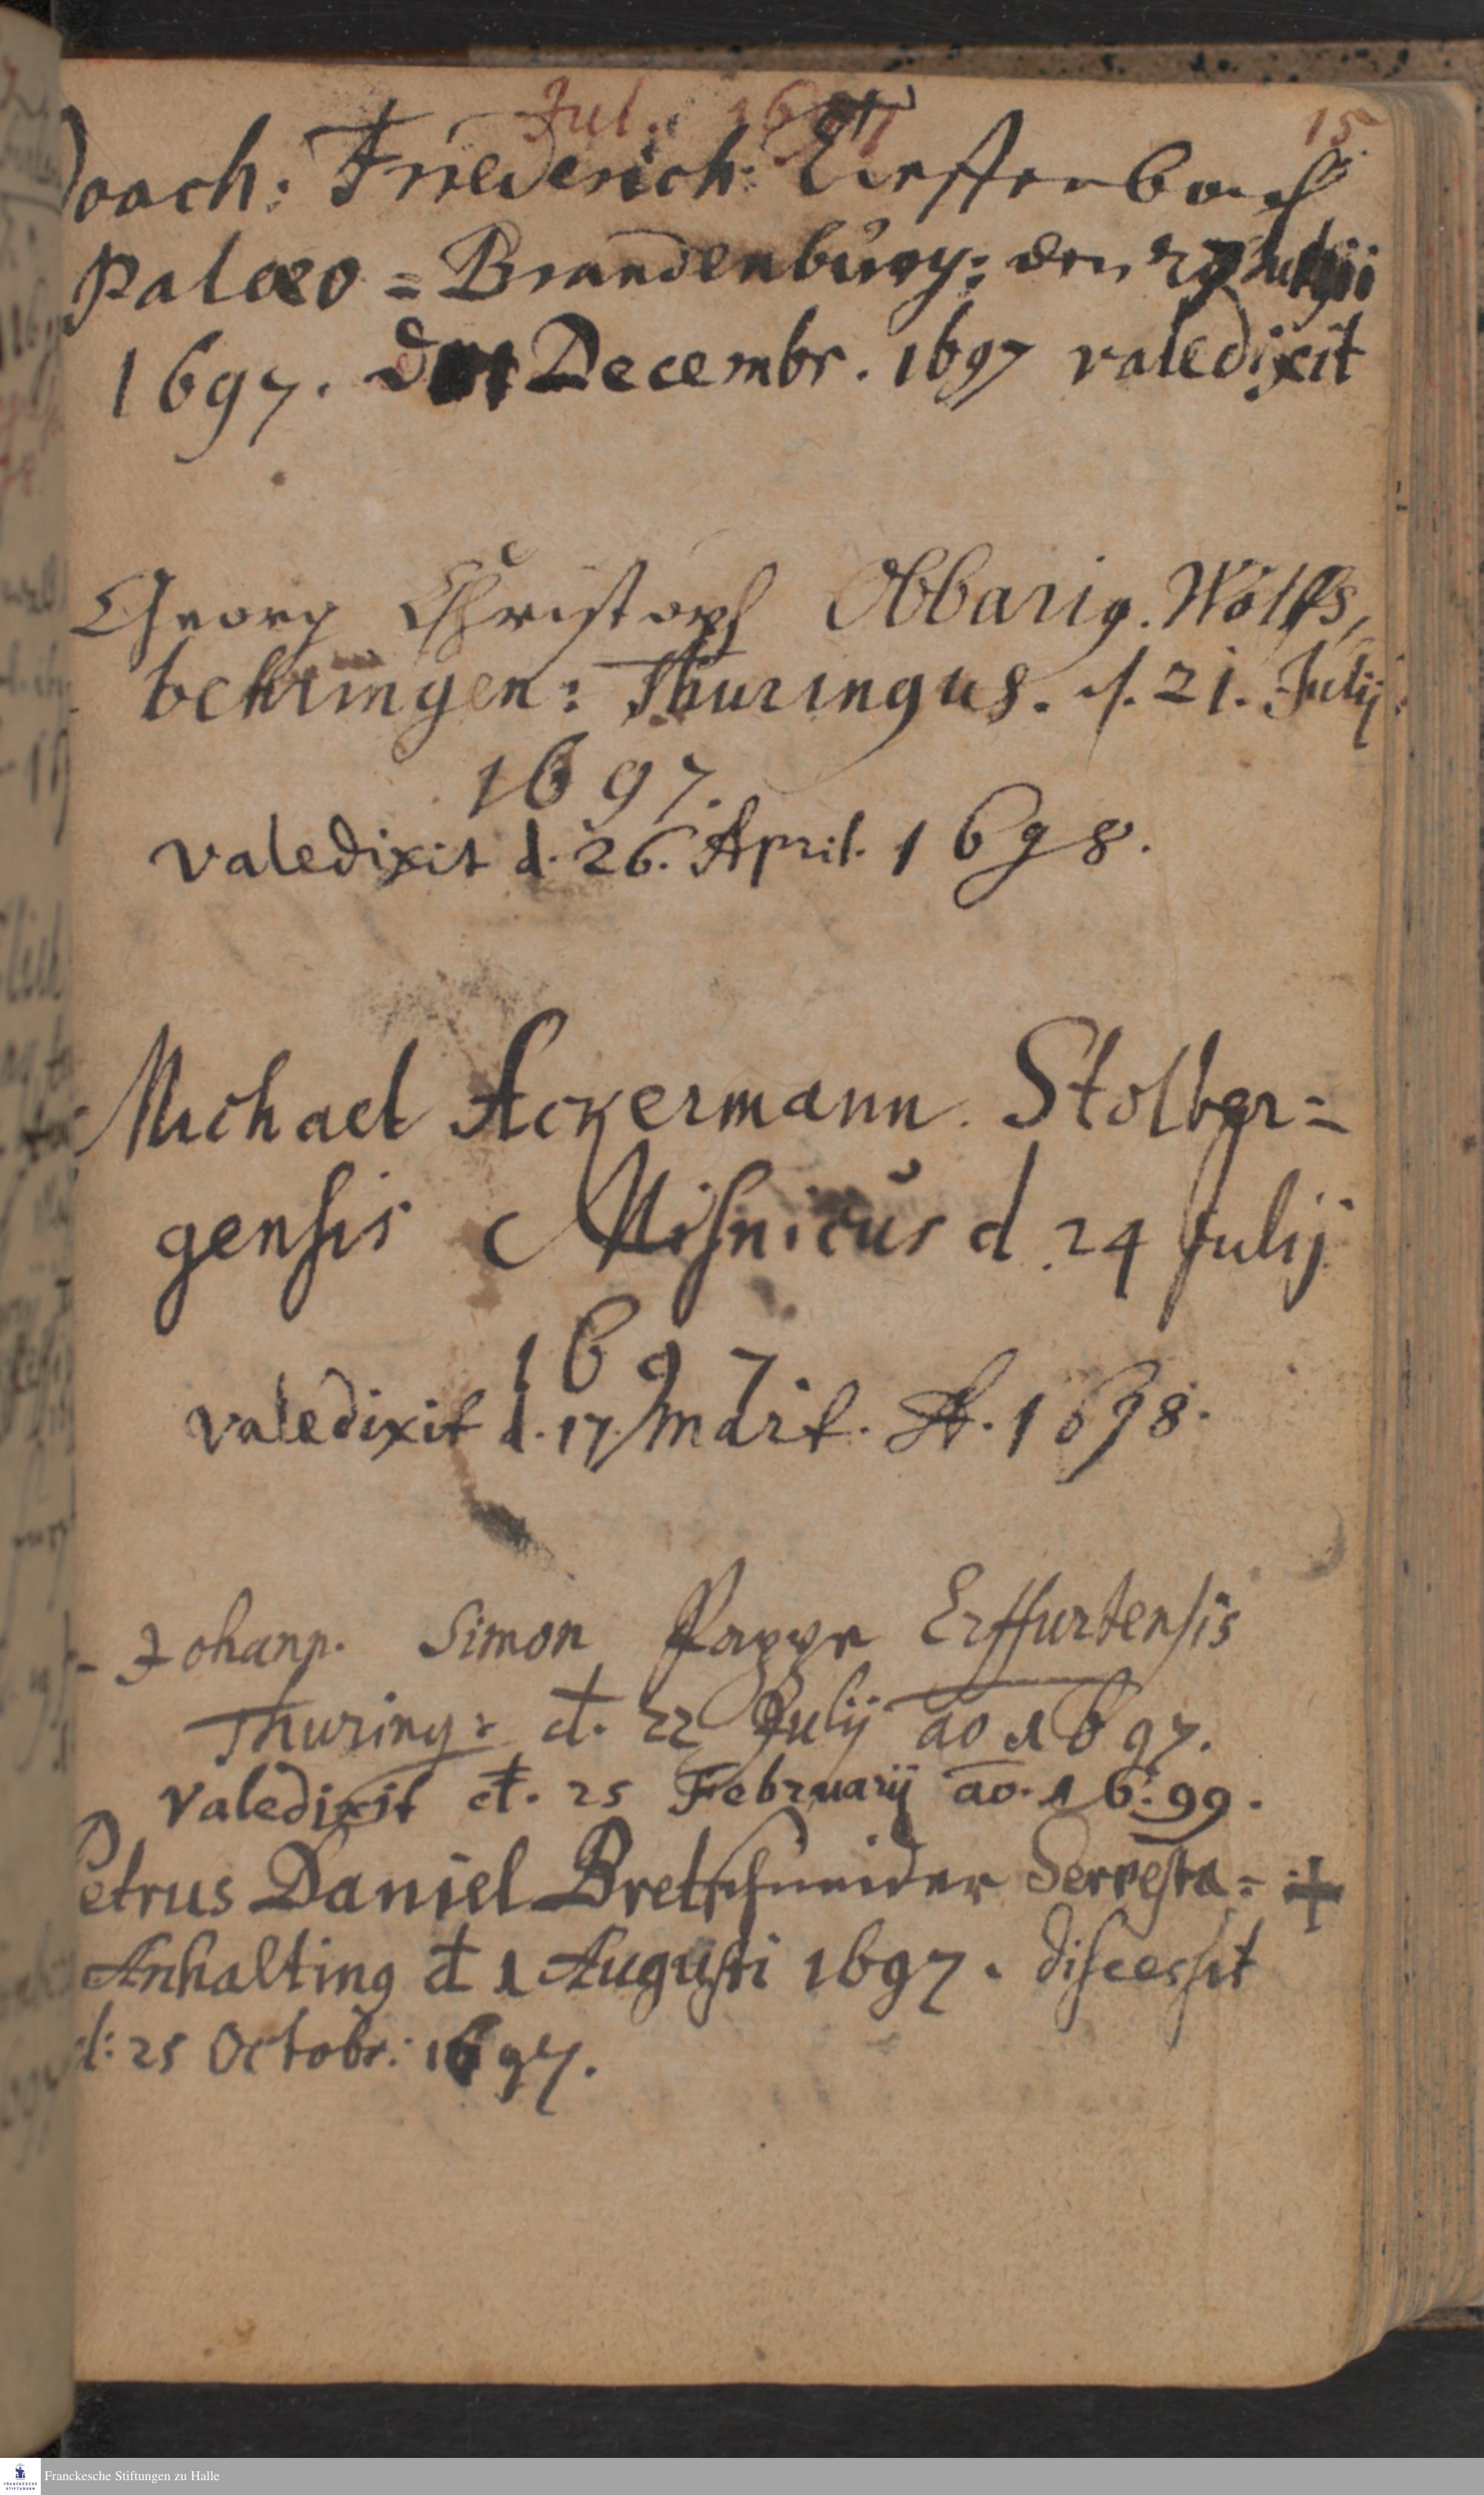 Jul. 1697 15
Joach: Friederich
Palæo=Brandenburg: den Julii
1697. Decembr. 1697 valedixit
Georg Christoph Obbarig. Wölffs,
behringen: Thuringus. d. 21. Julij
1697.
Valedixit d. 26. April. 1698.
Michael Ackermann. Stolber=
gensis Misnicus d. 24 Julij
1697.
Valedixit d. 17. Mart. A. 1698.
Johann. Simon Pappe Erffurtensis
Thuring: d. 22 Julij ao 1697.
Valedixit d. 25 Februarij ao. 1699.
Petrus Daniel Bretschneider Servesta= +
Anhalting d 1 Augusti 1697. discessit
d: 25 Octobr: 1697.
Franckesche Stiftungen zu Halle
FRANCKESCHE
STIFTUNGEN